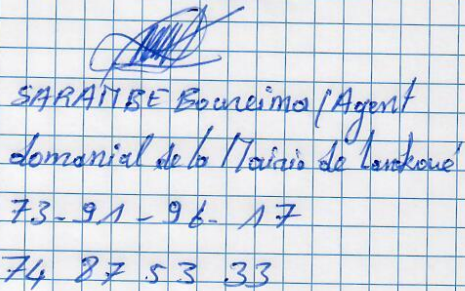 SARAMBE Boureima / Agent
domanial de la Mairie de Lankoué
73-91-96-17
74 87 53 33